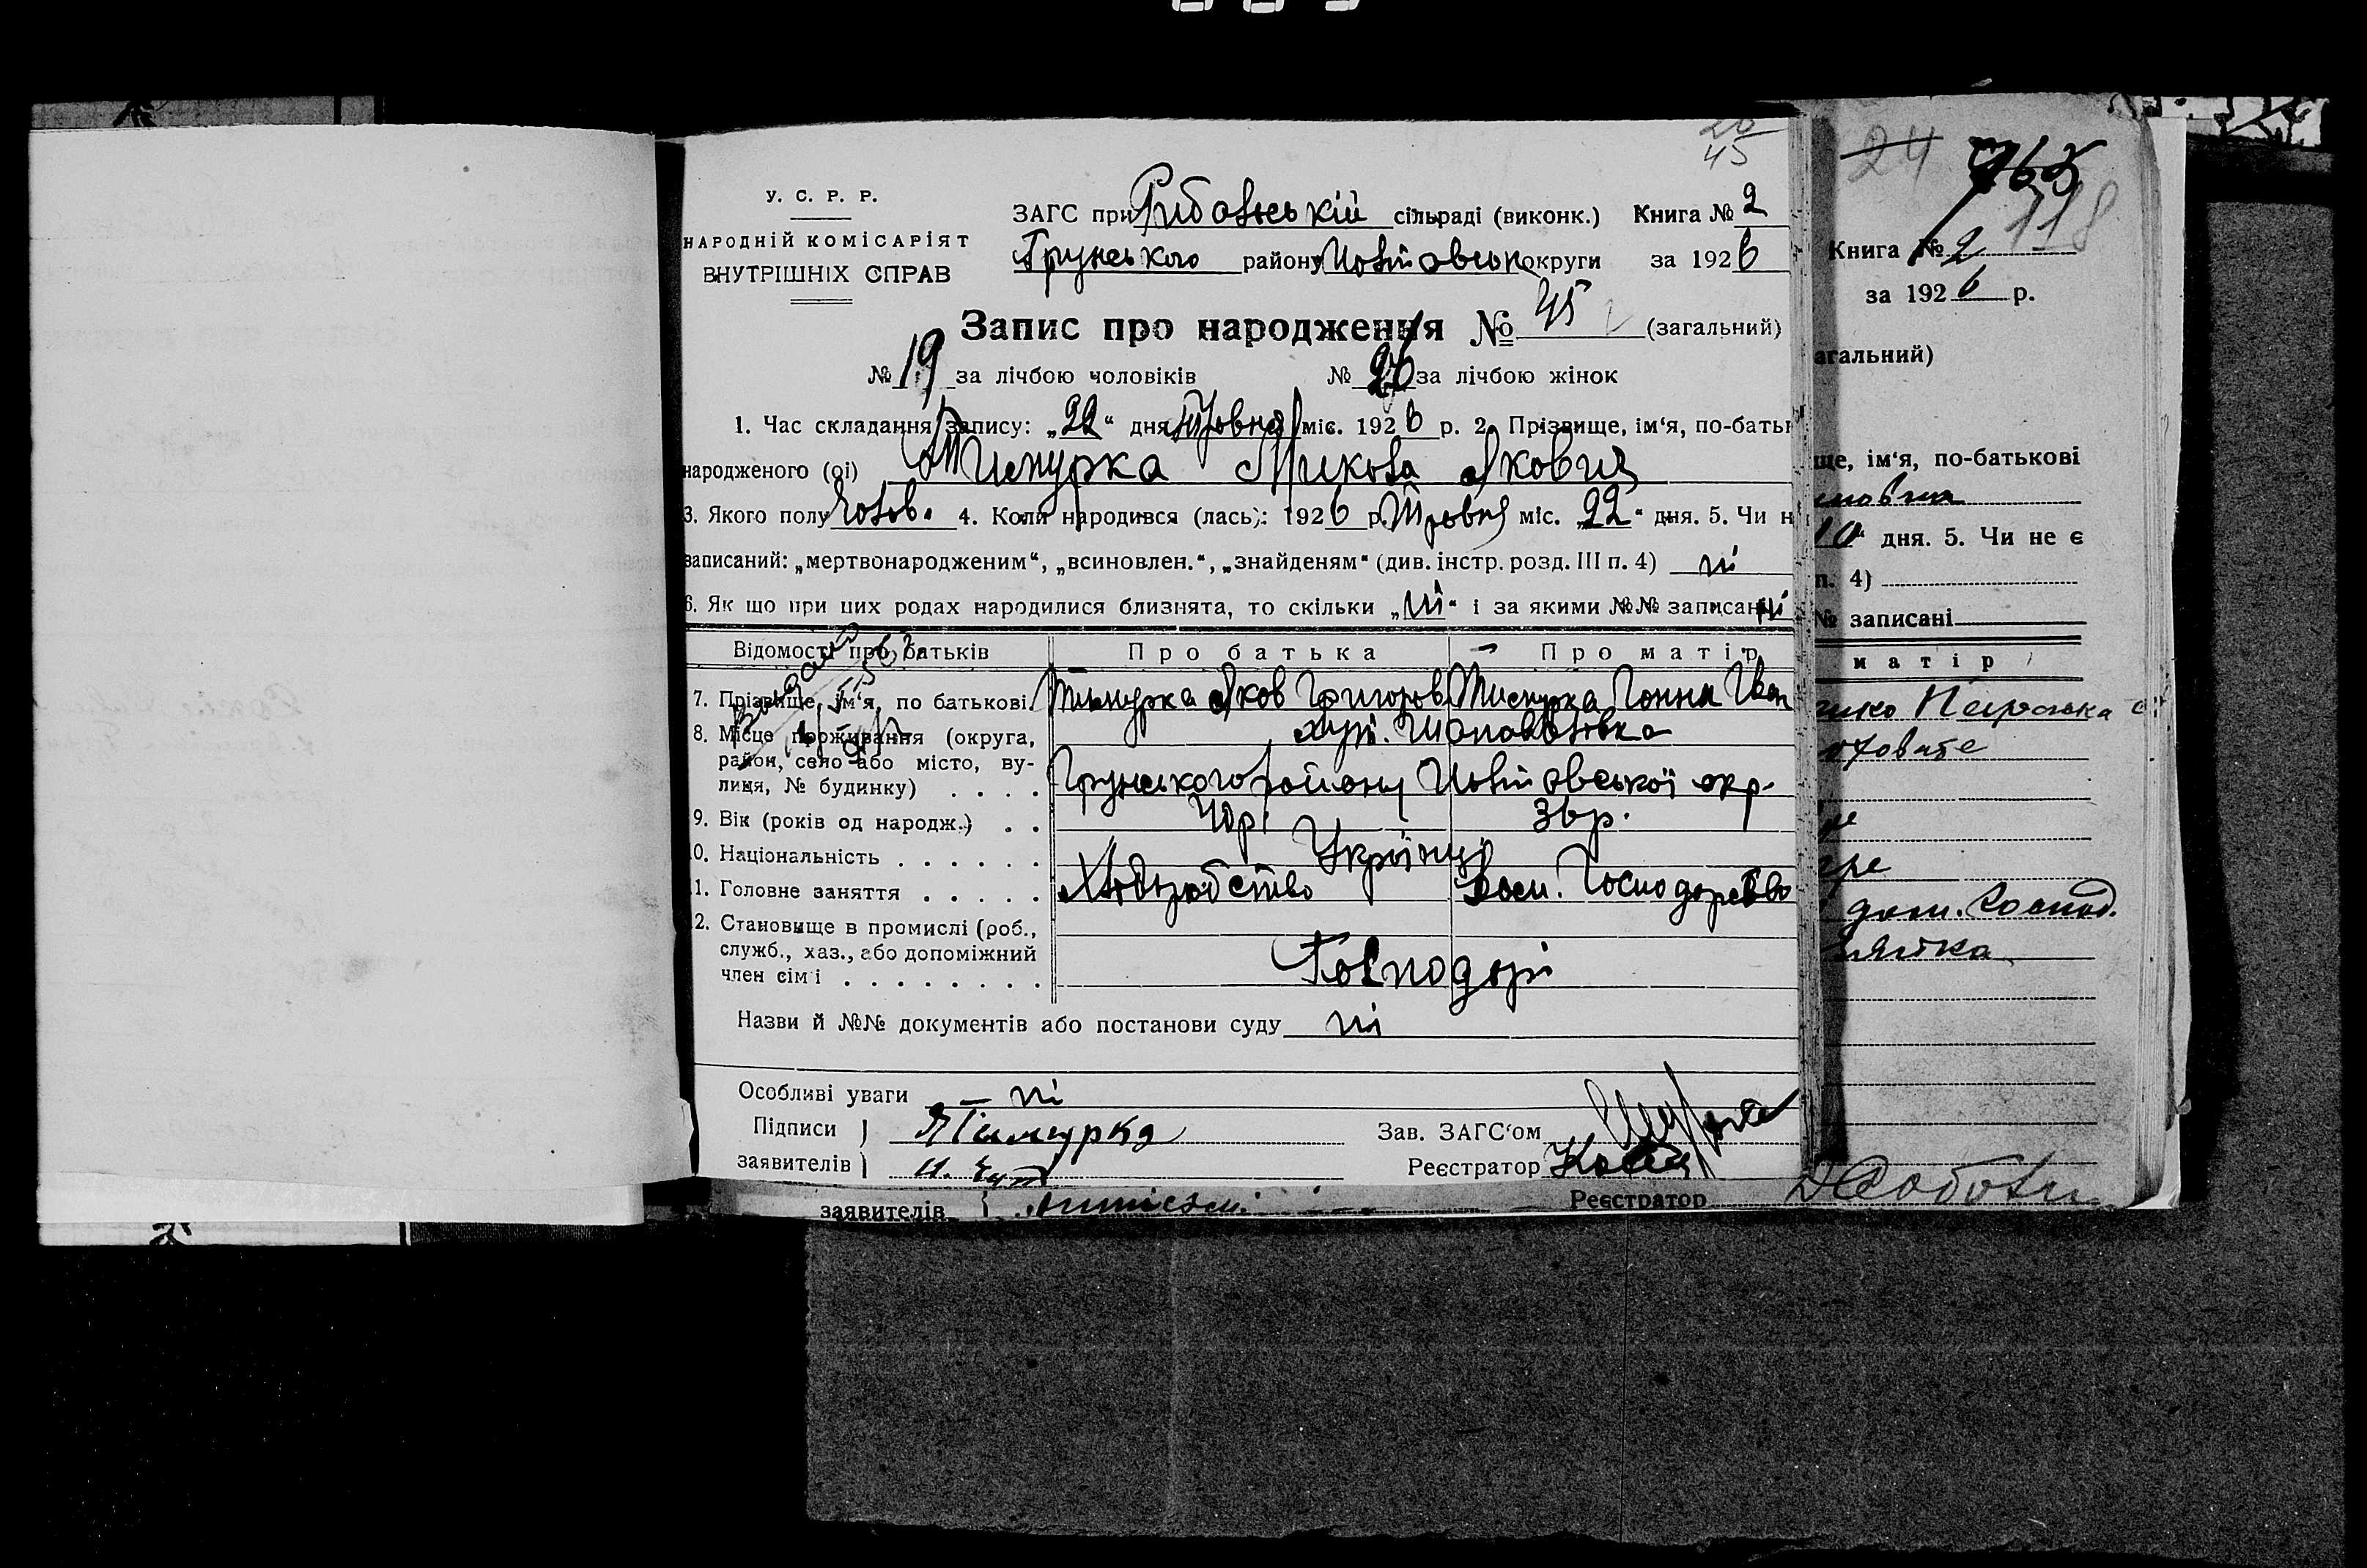 20
45
У. С. Р. Р.
НАРОДНІЙ КОМІСАРІЯТ
ВНУТРІШНІХ СПРАВ
ЗАГС при Рибальській сільраді (виконк.) Книга № 2
Грунського району округи за 1926
Запис про народження № 45 (загальний)
№ 19 за лічбою чоловіків № 26 за лічбою жінок
1. Час складання запису: „22“ дня Травня міс. 1926 р. 2. Прізвище, ім'я, по-батьк
народженого (ої) Тимурка Микола Якович
3. Якого полу Чолов. 4. Коли народився (лась): 1926 р. Травня міс. „22“ дня. 5. Чи н
записаний: „мертвонародженим“, „всиновлен.“, „знайденям“ (див. інстр. розд. III п. 4) ні
6. Як що при цих родах народилися близнята, то скільки „ні“ і за якими №№ записані ні
Відомості про батьків Про батька Про матір
7. Прізвище, ім'я, по батькові. Тимурка Яков Григоров Тимурка Ганна Іван
8. Місце проживання (округа, хут. Шаповалівка
район, село або місто, ву-
лиця, № будинку) . . . . Грунського району окр.
9. Вік (років од народж.) . . 40р. 36р.
10. Національність . . . . . . Українці
11. Головне заняття . . . . . Хліборобство Дом. Господарство
12. Становище в промислі (роб.,
служб., хаз., або допоміжний
член сім'ї . . . . . . . . Господарі
Назви й №№ документів або постанови суду ні
Особливі уваги — ні
Підписи ЯТимурка Зав. ЗАГС'ом
заявителів Реєстратор
заявителів Реєстратор
24
118
Книга № 2
за 1926 р.
агальний)
ще, ім'я, по-батькові
10“ дня. 5. Чи не є
п. 4)
№ записані
матір
дом. Господ.